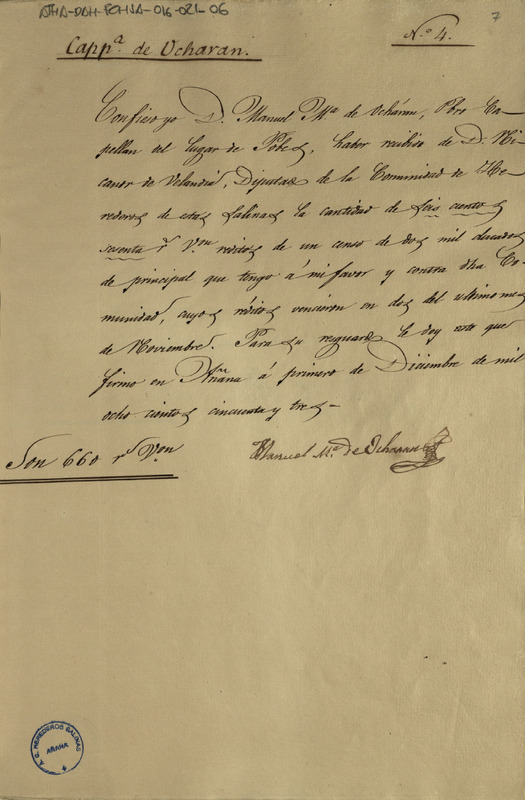 ATHA-DAH-FCHSA-016-021-06
7
Nº 4.
Cappª de Ucharan.
Confieso yo D. Manuel Mª de Ocháran, Pbro Ca-
pellan del lugar de Pobes, haber recibido de D. Ni-
canor de Velandia, Diputado de la Comunidad de He-
rederos de estas Salinas la cantidad de seis cientos
sesenta rs Von réditos de un censo de dos mil ducados
de principal que tengo á mi favor y contra dha Co-
munidad, cuyos réditos vencieron en dos del ultimo mes
de Noviembre. Para su resguardo le doy este que
firmo en Añana á primero de Diciembre de mil
ocho cientos cincuenta y tres-
Son 660 rs Von
Manuel Mª de Ocharan
A. C. HEREDEROS SALINAS
AÑANA